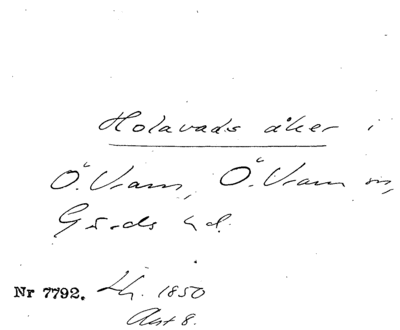 Holavads åker i
Ö. Vram, Ö. Vram sn,
Gärds hd.
Nr 7792. Lh. 1850
Akt 8.